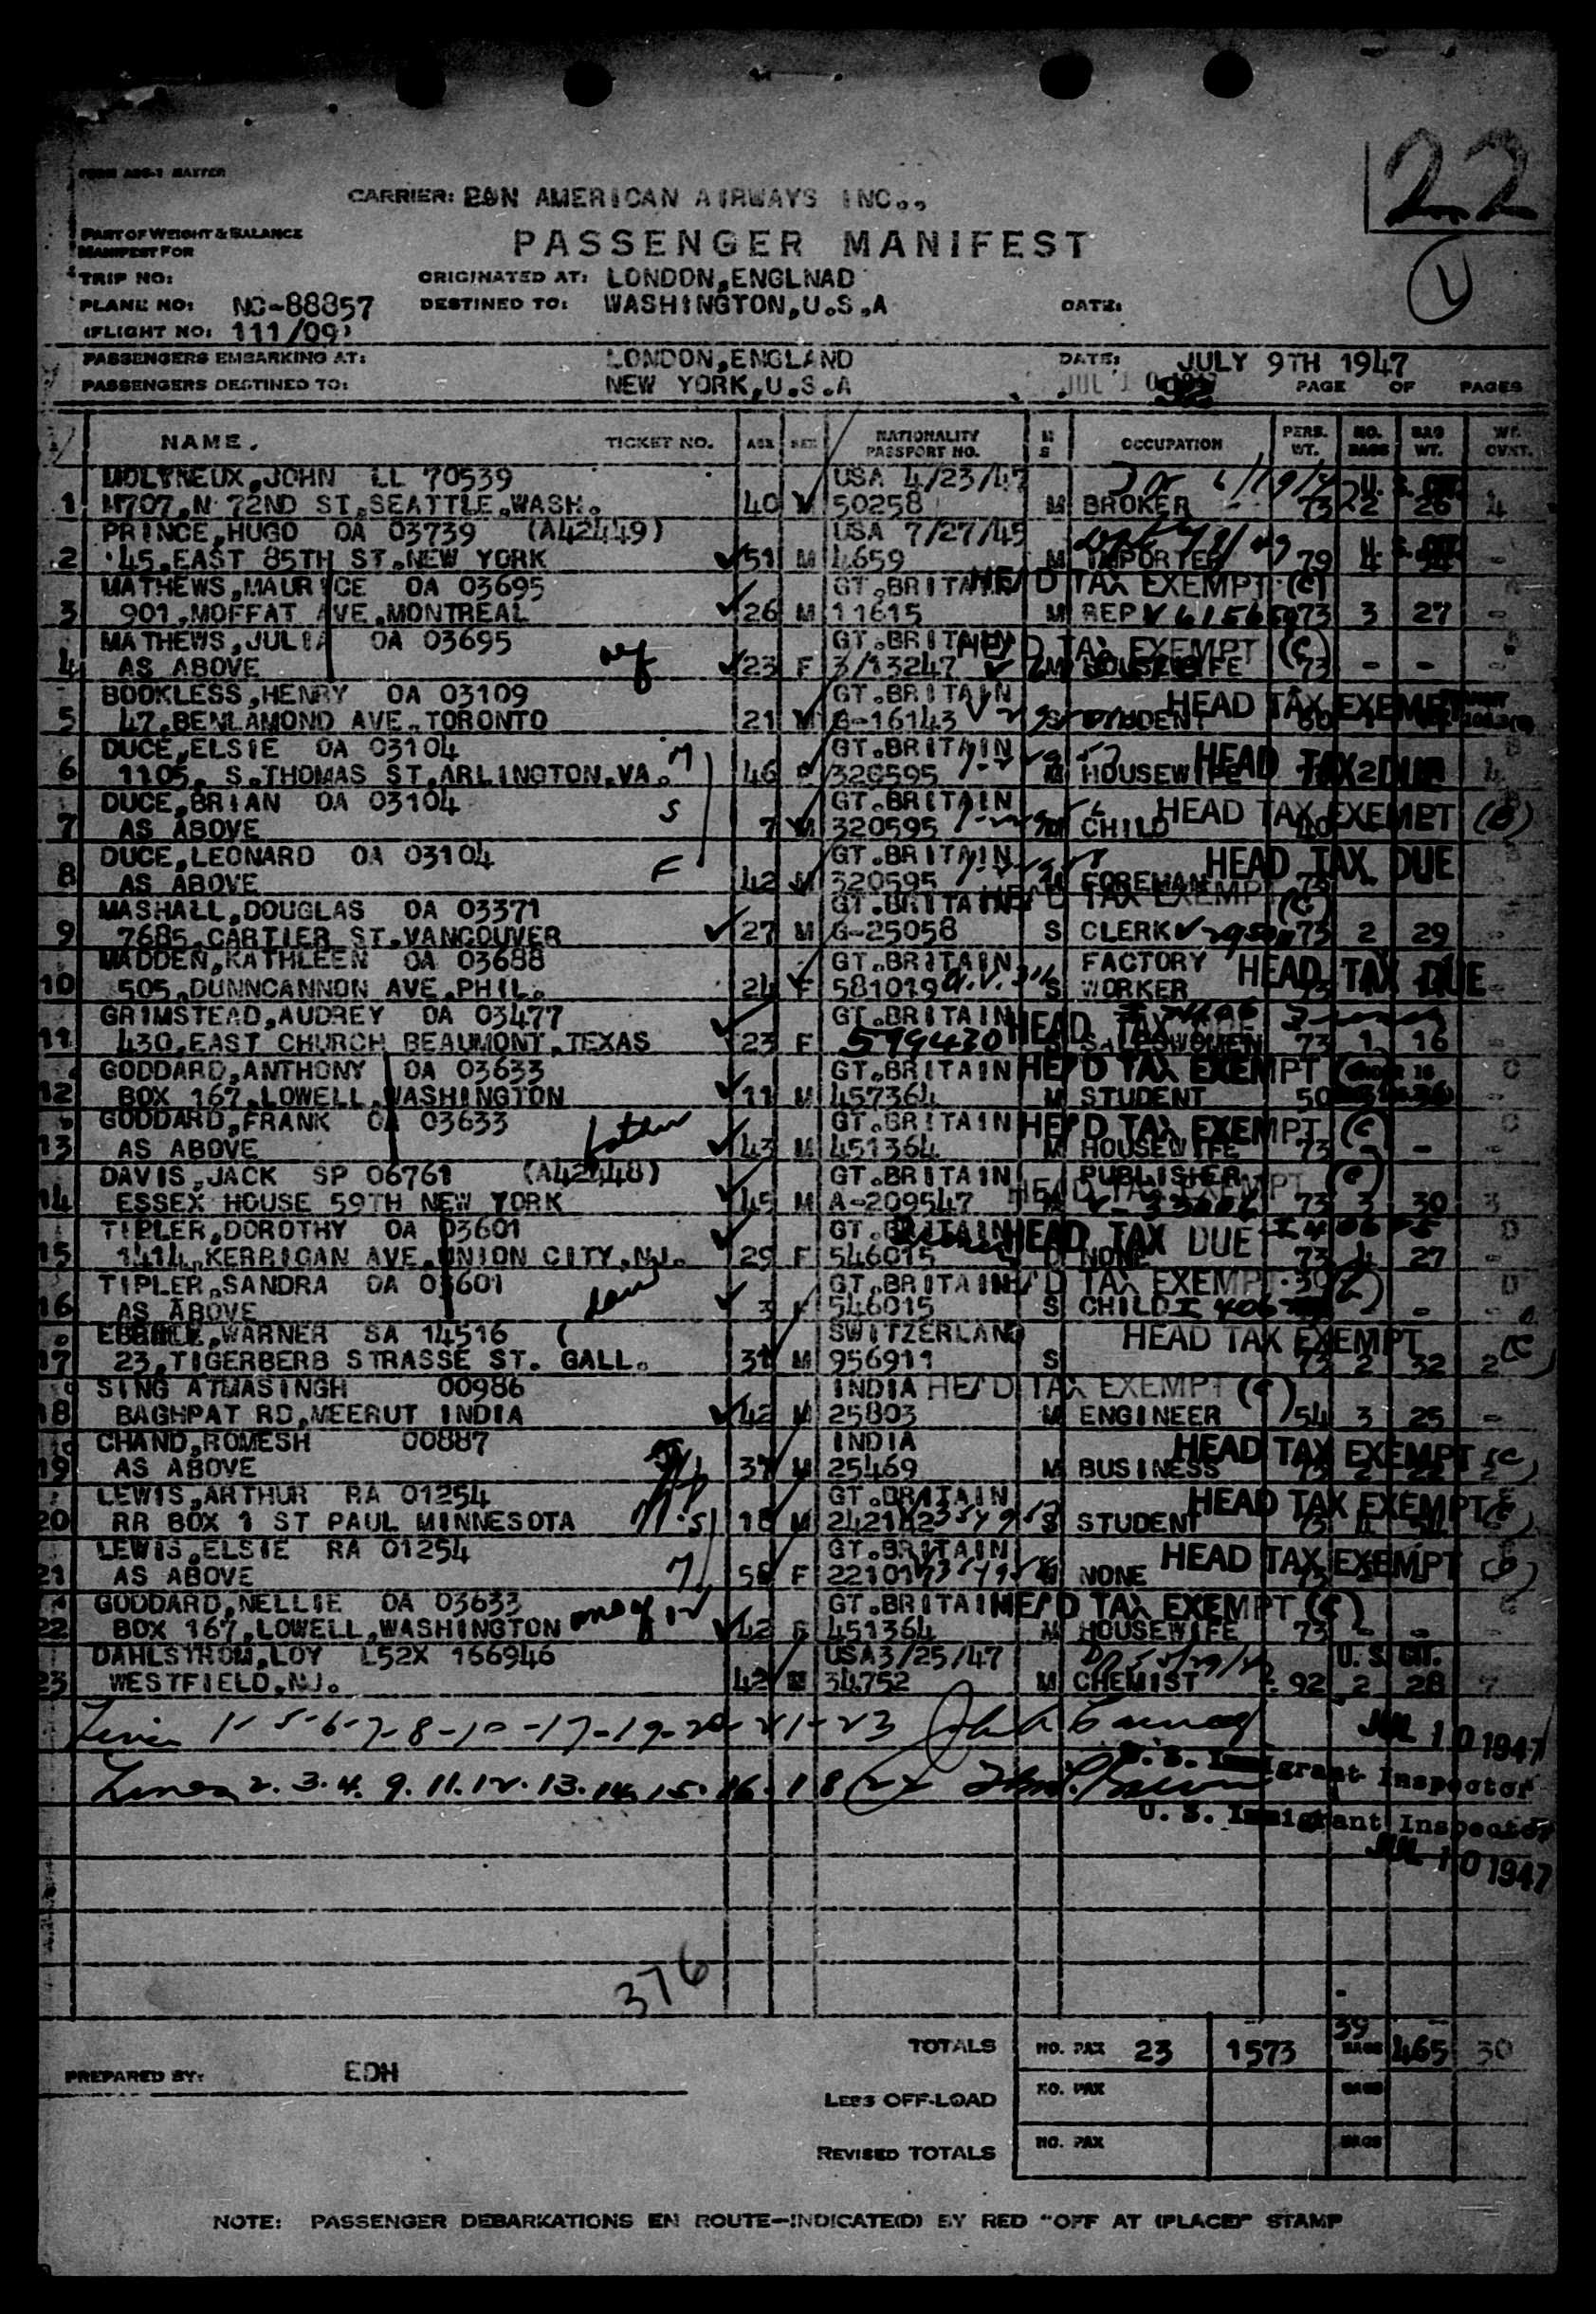 FORM ABC-1 MATTER
22
CARRIER: PAN AMERICAN AIRWAYS INC.,
PART OF WEIGHT & BALANCE
MANIFEST FOR
PASSENGER MANIFEST
TRIP NO: ORIGINATED AT: LONDON,ENGLNAD
PLANE NO: NC-88857 DESTINED TO: WASHINGTON,U.S.A DATE:
(FLIGHT NO: 111/09)
PASSENGERS EMBARKING AT: LONDON,ENGLAND DATE: JULY 9TH 1947
PASSENGERS DESTINED TO: NEW YORK,U.S.A JUL 10 PAGE OF PAGES
NAME. TICKET NO. AGE SEX NATIONALITY PASSPORT NO. M S OCCUPATION PERS. WT. NO. BAGS BAG WT. WT. OVXT.
MOLYNEUX,JOHN LL 70539 USA 4/23/47
1 M707,N 72ND ST,SEATTLE,WASH. 40 M 50258 M BROKER 73 2 26 4
PRINCE,HUGO OA 03739 (A42449) USA 7/27/45
2 45,EAST 85TH ST.NEW YORK 51 M 4659 M IMPORTER 79 4
MATHEWS,MAURICE OA 03695 GT.BRITAIN HEAD TAX EXEMPT (C)
3 901,MOFFAT AVE,MONTREAL 26 M 11615 M REP 73 3 27 -
MATHEWS,JULIA OA 03695 GT.BRITAIN HEAD TAX EXEMPT (C)
4 AS ABOVE 23 F 3/13247 M HOUSEWIFE 73 - - -
BOOKLESS,HENRY OA 03109 GT.BRITAIN HEAD TAX EXEMPT
5 47,BENLAMOND AVE.TORONTO 21 M G-16143 S STUDENT
DUCE,ELSIE OA 03104 GT.BRITAIN
6 1105, S.THOMAS ST,ARLINGTON,VA. 46 F 320595 M HOUSEWIFE HEAD TAX DUE
DUCE,BRIAN OA 03104 S GT.BRITAIN HEAD TAX EXEMPT (B)
7 AS ABOVE 7 M 320595 CHILD
DUCE,LEONARD OA 03104 F GT.BRITAIN HEAD TAX DUE
8 AS ABOVE 42 M 320595 FOREMAN 73
MASHALL,DOUGLAS OA 03371 GT.BRITAIN HEAD TAX EXEMPT (C)
9 7685,CARTIER ST.VANCOUVER 27 M G-25058 S CLERK 73 2 29 -
MADDEN,KATHLEEN OA 03688 GT.BRITAIN FACTORY HEAD TAX DUE
10 505,DUNNCANNON AVE.PHIL. 24 F 581019 S WORKER
GRIMSTEAD,AUDREY OA 03477 GT.BRITAIN HEAD TAX DUE
11 430,EAST CHURCH BEAUMONT,TEXAS 23 F 599430 73 1 16
GODDARD,ANTHONY OA 03633 GT.BRITAIN HEAD TAX EXEMPT
12 BOX 167,LOWELL,WASHINGTON 11 M 457364 M STUDENT 50
GODDARD,FRANK OA 03633 GT.BRITAIN HEAD TAX EXEMPT (C)
13 AS ABOVE father 43 M 451364 M HOUSEWIFE 73 - -
DAVIS,JACK SP 06761 (A42448) GT.BRITAIN PUBLISHER HEAD TAX EXEMPT (C)
14 ESSEX HOUSE 59TH NEW YORK 45 M A-209547 M 73 3 30 3
TIPLER,DOROTHY OA 03601 GT.BRITAIN HEAD TAX DUE
15 1414,KERRIGAN AVE,UNION CITY,NJ. 29 F 546015 NONE 73 4 27 -
TIPLER,SANDRA OA 03601 GT.BRITAIN HEAD TAX EXEMPT
16 AS ABOVE 3 F 546015 S CHILD - -
WARNER SA 14516 ( SWITZERLAND HEAD TAX EXEMPT (C)
17 23,TIGERBERB STRASSE ST. GALL. 31 M 956911 S 73 2 32 2
SING ATMASINGH 00986 INDIA HEAD TAX EXEMPT (C)
18 BAGHPAT RD,MEERUT INDIA 42 M 25803 M ENGINEER 54 3 25 -
CHAND,ROMESH 00887 INDIA HEAD TAX EXEMPT (C)
19 AS ABOVE 37 M 25469 M BUSINESS 2 22 2
LEWIS,ARTHUR RA 01254 GT.BRITAIN HEAD TAX EXEMPT
20 RR BOX 1 ST PAUL MINNESOTA 18 M 242142 S STUDENT
LEWIS,ELSIE RA 01254 GT.BRITAIN HEAD TAX EXEMPT
21 AS ABOVE 58 F 221017 NONE
GODDARD,NELLIE OA 03633 GT.BRITAIN HEAD TAX EXEMPT (C)
22 BOX 167,LOWELL,WASHINGTON 42 F 451364 M HOUSEWIFE 73 - - -
DAHLSTROM,LOY L52X 166946 USA3/25/47 U. S. CIT.
23 WESTFIELD,NJ. 42 M 34752 M CHEMIST 92 2 28 7
Lines 1-5-6-7-8-10-17-19-20-21-23
JUL 10 1947
U. S. Immigrant Inspector
Lines 2. 3. 4. 9. 11. 12. 13. 14. 15. 16. 18 22
U. S. Immigrant Inspector
JUL 10 1947
376
TOTALS NO. PAX 23 1573 39 BAGS 465 30
PREPARED BY: EDH
LESS OFF-LOAD NO. PAX BAGS
REVISED TOTALS NO. PAX BAGS
NOTE: PASSENGER DEBARKATIONS EN ROUTE—INDICATE(D) BY RED "OFF AT (PLACE)" STAMP